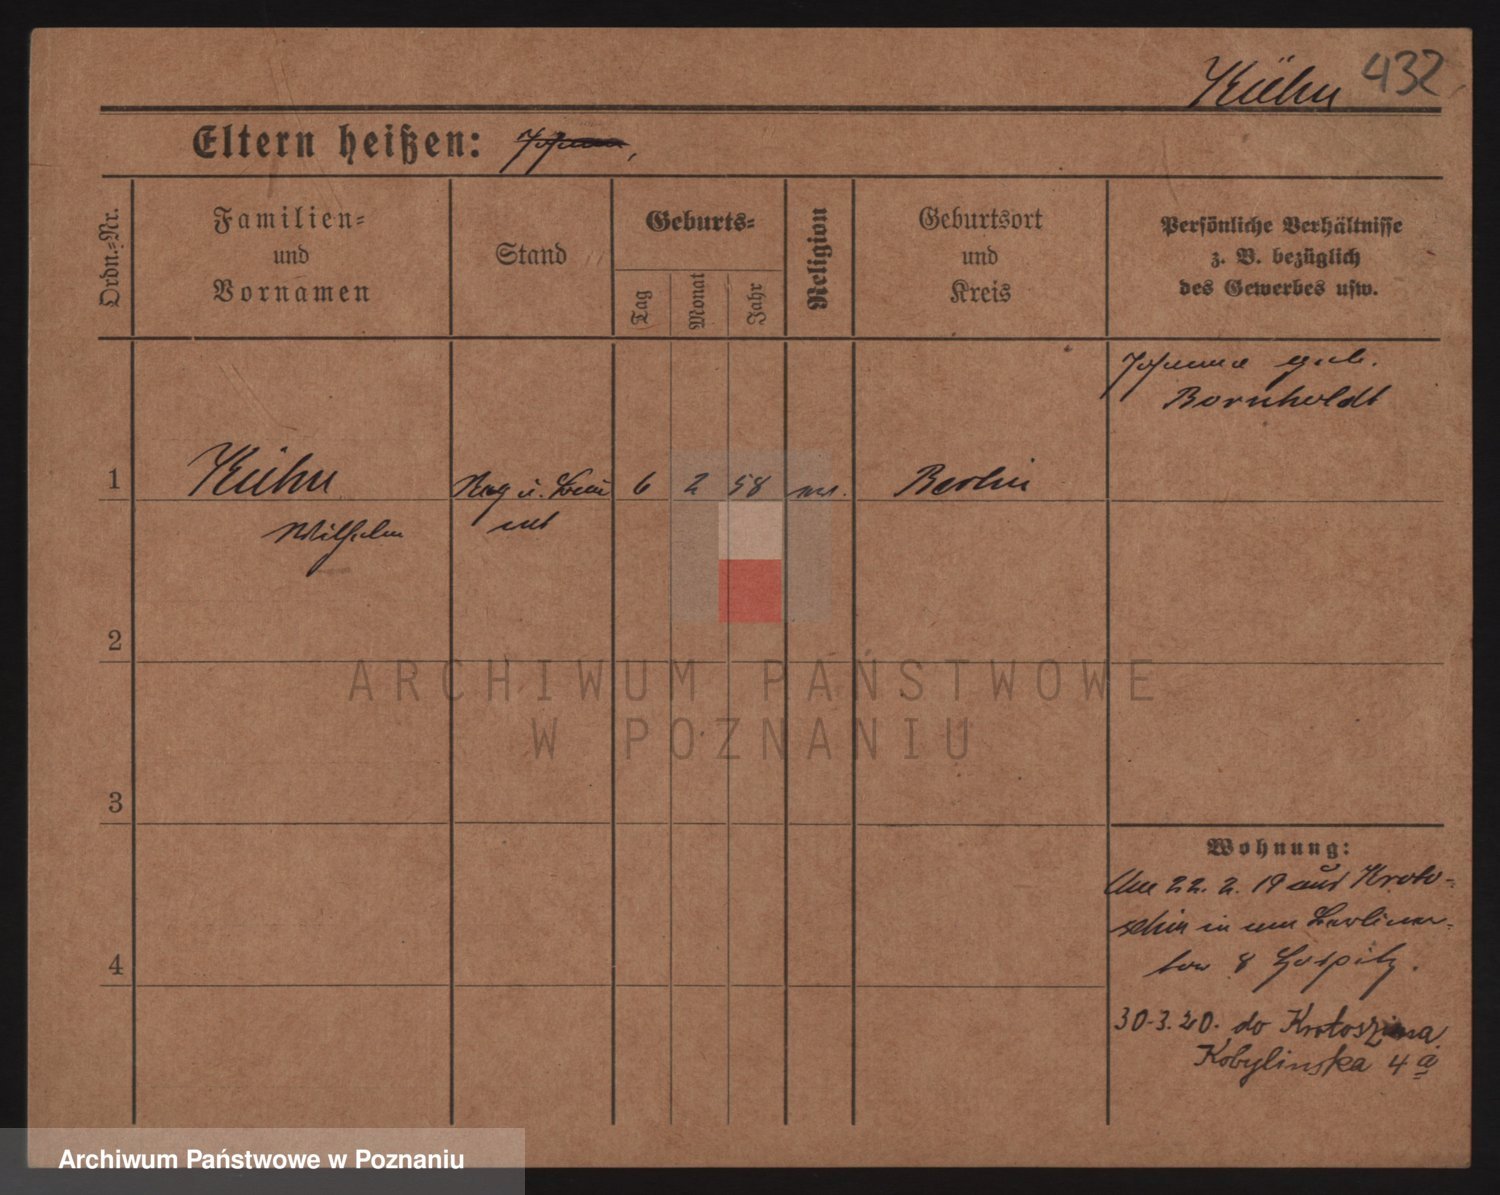 Kühn 432
Eltern heißen: Johanna,
Ordn.=Nr.
Familien=
und
Vornamen
Stand
Geburts=
Tag
Monat
Jahr
Religion
Geburtsort
und
Kreis
Persönliche Verhältnisse
z. B. bezüglich
des Gewerbes usw.
Johanna geb.
Bornholdt
1 Kühn Reg u. 6 2 58 ev. Berlin
Wilhelm
2
3
4
Wohnung:
Am 22. 2. 19 aus Kroto-
schin in Berliner-
tor 8 Hospitz.
30.3.20. do Krotoszina
Kobylinska 4 a
ARCHIWUM PAŃSTWOWE
W POZNANIU
Archiwum Państwowe w Poznaniu